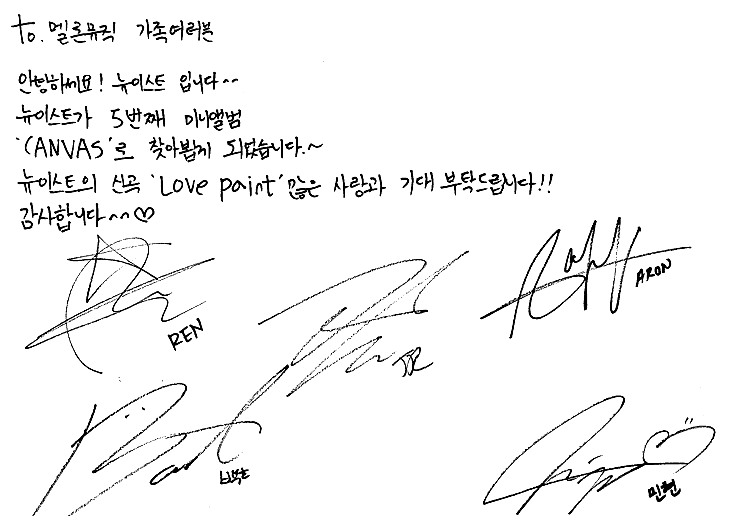 to. 멜론뮤직 가족여러분
안녕하세요! 뉴이스트 입니다~~
뉴이스트가 5번째 미니앨범
'CANVAS'로 찾아뵙게 되었습니다.~
뉴이스트의 신곡 'Love paint' 많은 사랑과 기대 부탁드립니다!!
감사합니다~~♡
REN
JR
ARON
백호
민현